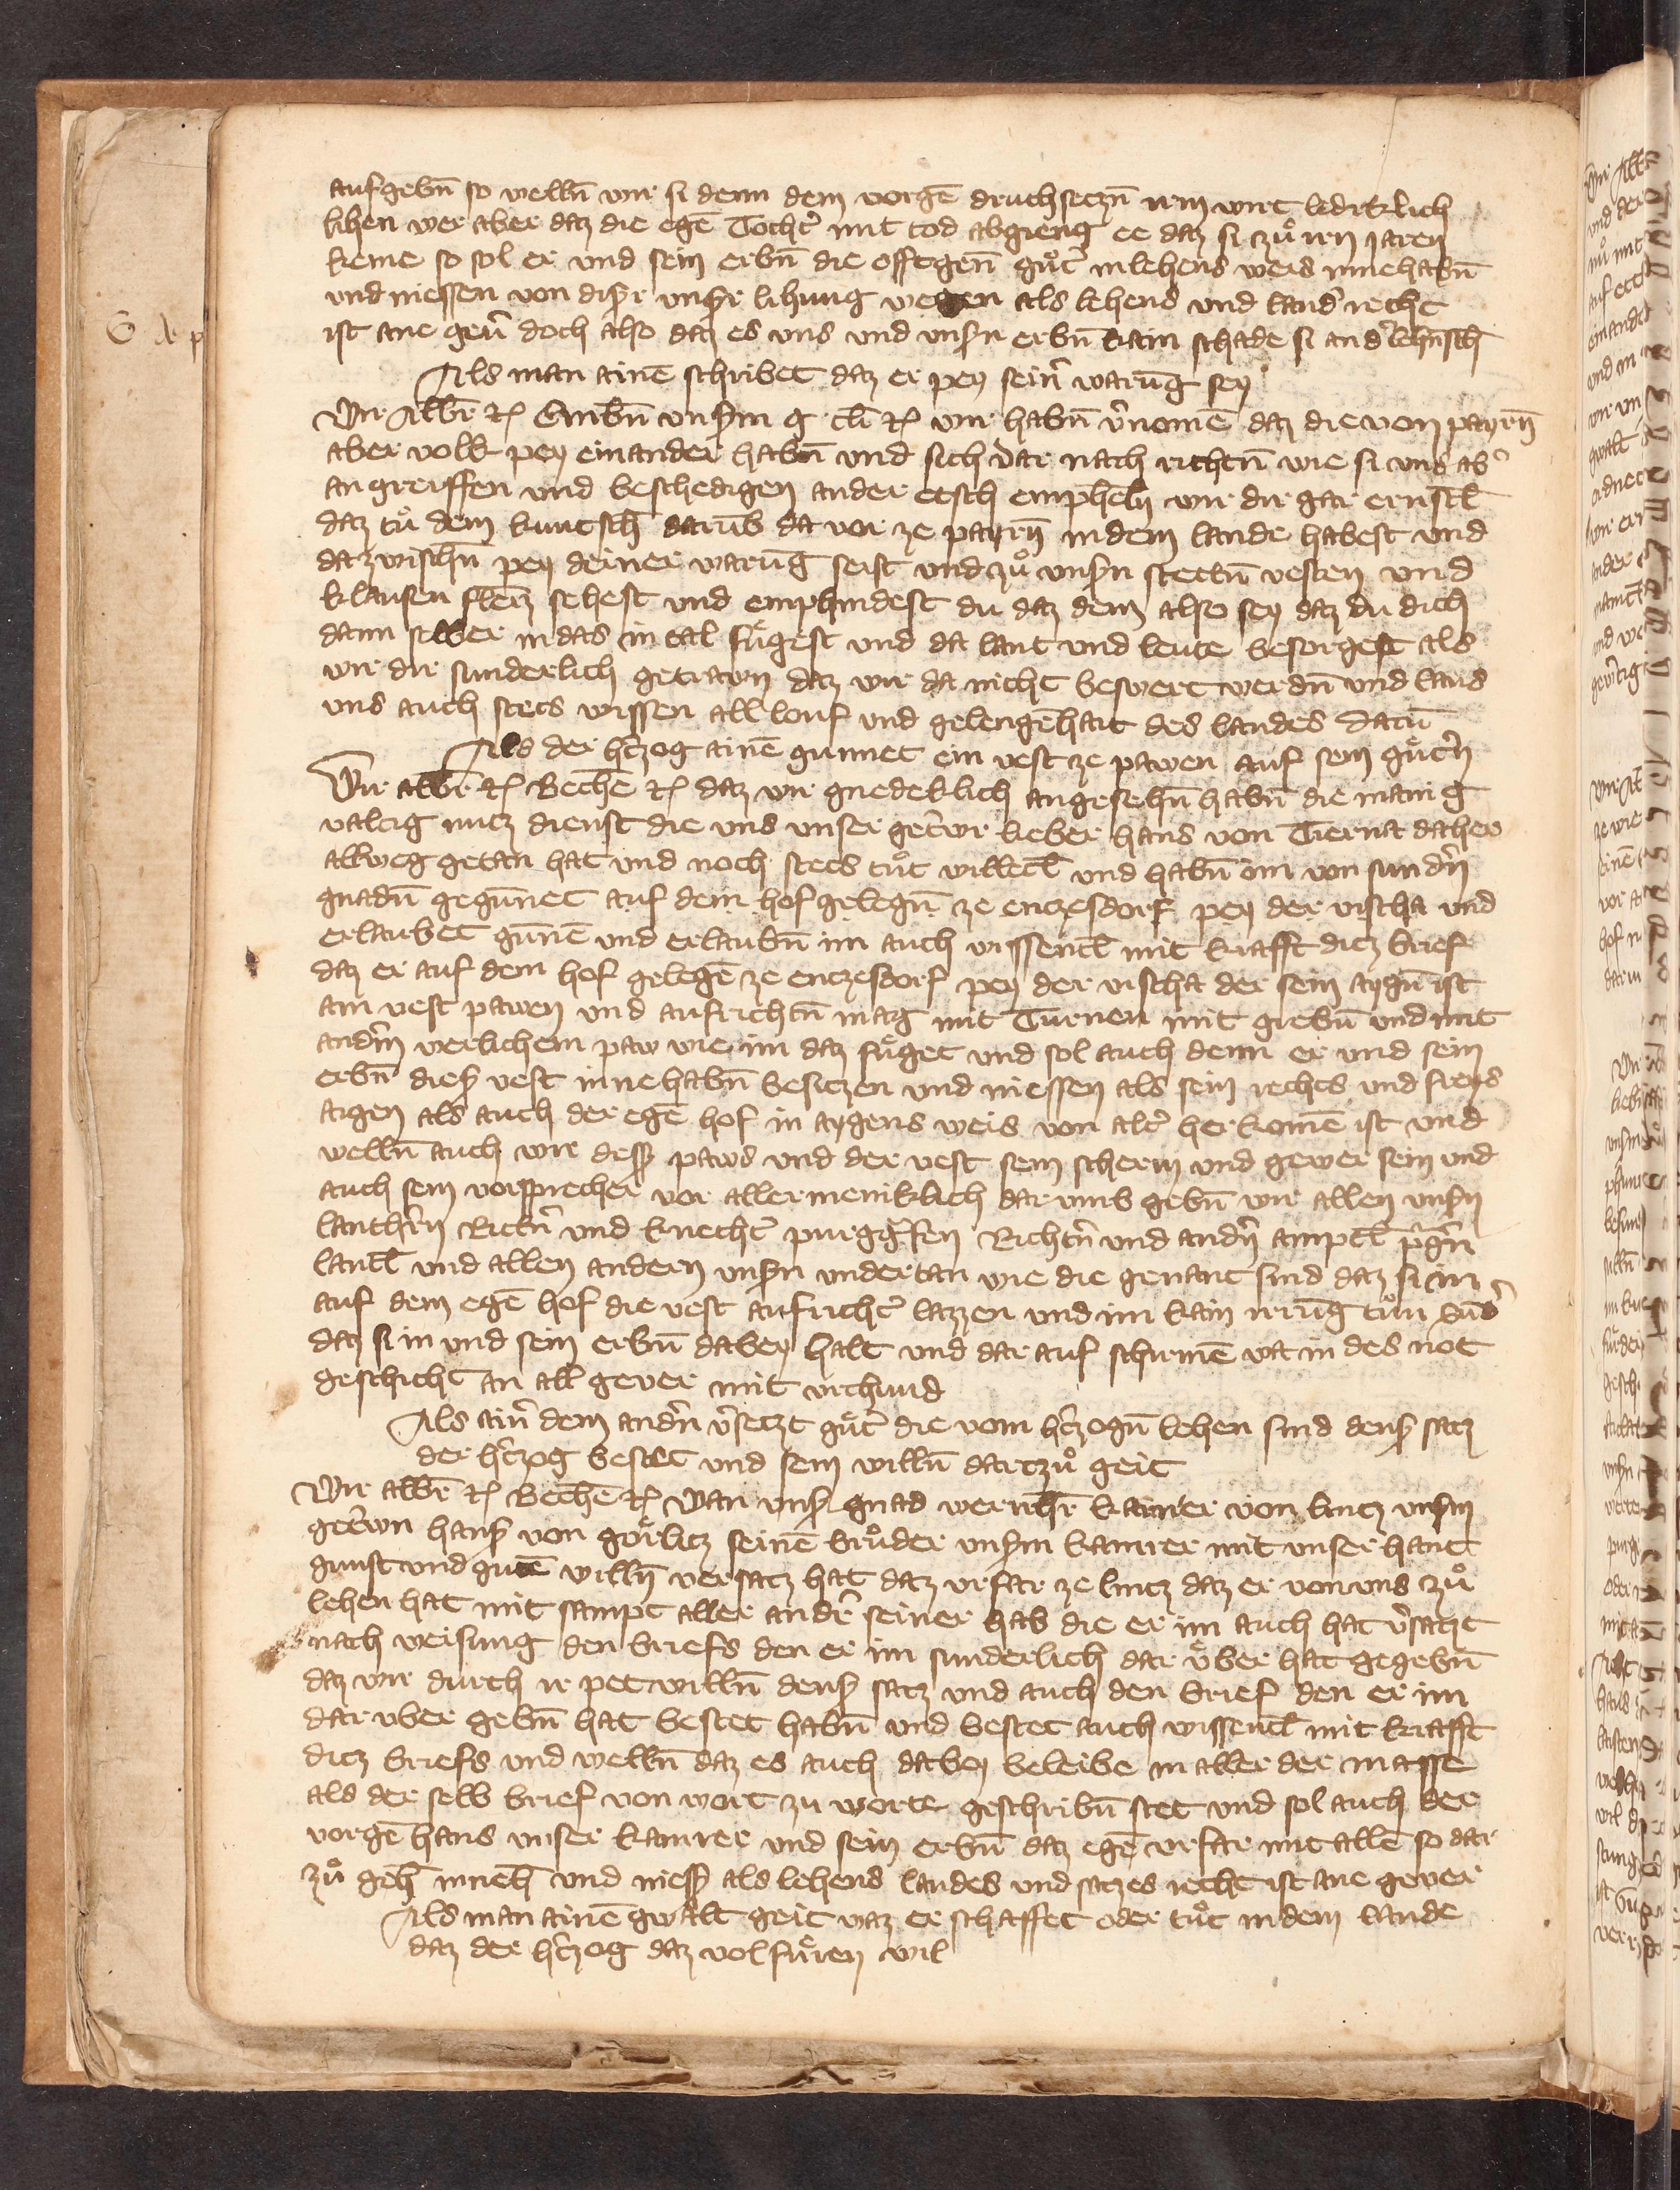 aufgebn̄ so welln̄ wir si denn dem vorgēn druchseczn̄ irm wirt ledicklich
lihen wer aber daz die egē Tocht̓ mit tod abgieng ee daz si zů irn jaren
keme so sol er und sein erbn̄ die offtgen̄ gůt̓ in lehens weis innehabn̄
und niessen von diser unsr̓ lihung wegen als lehens und land̓ recht
ist ane geu̓ doch also daz es uns und unsn̓ erbn̄ kain schade si an d̓ lehnsch̄
Als man ainē schribet daz er pey sein̓ warūg sey
Wir Albr̄ ꝛc Embn̄ unserm g cli ꝛc wir habn̄ v̓nomē daz die von payrn̄
aber volk pey einander habn̄ und sich dar nach richtn̄ wie si uns ab̓
angreiffen und beschedigen an der etsch emphelh̄ wir dir gar ernstl̄
daz tů dem kuntsch̄ darūb da vor ze payrn̄ in dem lande habest und
datzwischn̄ pey deiner warūg seist und zů unsn̓ stetn̄ vesten und
klausen fleizz sehest und emphindest du daz dem also sey daz du dich
dann selber in das in tal fůgest und da laut und leute besorgest als
wir dir sunderlich getrawn daz wir da nicht beswert werdn̄ und laas
uns auch stets wissen all louf und gelengēhait des landes datū
Als der h̓czog ainē gunnet ein vest ze pawen auf sein gůtn̓
Wir albr̄ ꝛc Bechē ꝛc daz wir gnedeklich angesehn̄ habn̄ die manig
valtig nucz dienst die uns unser get̓wr lieber hans von Tierna daher
allweg getan hat und noch stets tůt willetl̄ und habn̄ im von sundn̓
gnadn̄ gegūnet auf dem hof gelegn̄ ze enczesdorf pey der vischa und
erlaubet gūnē und erlaubn̄ im auch wissentl̄ mit krafft dicz brief
daz er auf dem hof gelegē ze enczesdorf pey der vischa der sein aygn̄ ist
ain vest pawen und aufrichtn̄ mag mit Tūrnen mit grebn̄ und mit
andm̓ werlichem paw wie im daz fůget und sol auch denn er und sein
erbn̄ dies̓ vest innehabn̄ besiczen und niessen als sein rechts und freys
aigen als auch der egē hof in aygens weis von alt̓ herkomē ist und
welln̄ auch wir dess̓ paws und der vest sein scherm und gewer sein und
auch sein vorsprecher vor allermeniklich dar umb gebn̄ wir allen unsn̓
lanth̓rn Rittn̓ und knecht̓ purggrefen Richtn̓ und andn̓ amptl̄ p̓gn̓
lantl̄ und allen andern unsn̓ undertan wie die genant sind daz si im
auf dem egē hof die vest aufricht̓ lazzen und im kain irrūg tůn sūd̓
daz si in und sein erbn̄ dabey halt und dar auf schirmē wa in des not
geschicht an all gever mit urchund
Als ain̓ dem andn̓ v̓seczt gůt̓ die vom h̓czogn̄ lehen sind dens̓ sacz
der h̓czog bestet und sein willn̄ dartzů geit
Wir albr̄ ꝛc Bechē ꝛc wan uns̓ gnad wernhr̄ kamrer von lincz unsm̓
get̓wn hans̓ von Gorlicz seinē brůder unsm̓ kamrer mit unser hant
gunst und gutē willn̄ versacz hat daz urfar ze lincz daz er von uns zů
lehen hat mit sampt aller andr̓ seiner hab die er im auch hat v̓saczt
nach weisung den briefs den er im sunderlich dar ůber hat gegebn̄
daz wir durch ir pet willn̄ dens̓ sacz und auch den brief den er im
dar uber gebn̄ hat bestet habn̄ und bestet auch wissentl̄ mit krafft
dicz briefs und welln̄ daz es auch dabey beleibe in aller der masse
als der selb brief von wort zu worte geschribn̄ stet und sol auch der
vorgē hans unser kamrer und sein erbn̄ daz egē urfar mit allē so dar
zů geh̄ inneh̄ und niess̓ als lehens landes und saczes recht ist ane gever
Als man ainē gwalt geit waz er schaffet oder tůt in dem lande
daz der h̓czog daz volfůren wil